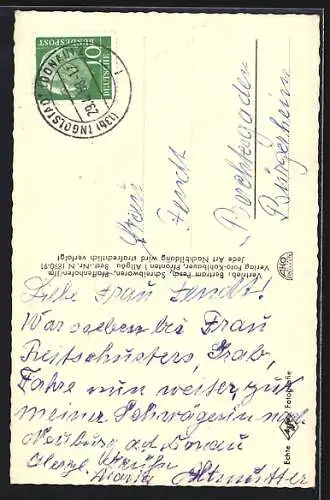 DEUTSCHE
BUNDESPOST
10
(13b) INGOLSTADT (DONAU)
Frau
Fendt
Berchtesgaden
Bürgerheim
Vertrieb: Bertram Ferd., Schreibwaren, Pfaffenhofen/Ilm
Verlag Foto-Kohlbauer, Pfronten i. Allgäu Best.-Nr. N 1890/91
Jede Art Nachbildung wird strafrechtlich verfolgt
Liebe Frau Fendt!
War soeben bei Frau
Reitschusters Grab,
Fahre nun weiter, zu
meiner Schwägerin nach
Neuburg a.d. Donau
Herzl. Grüße
Maria Altmutter
Echte Agfa Fotografie